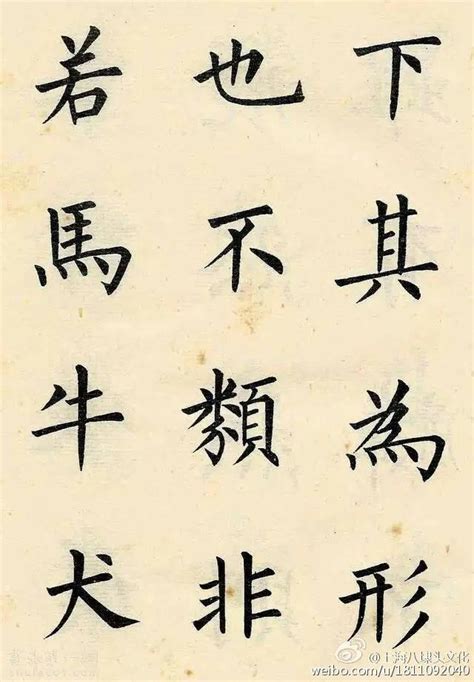 下其為形
也不類非
若馬牛犬
@上海八块头文化
weibo.com/u/1811092040